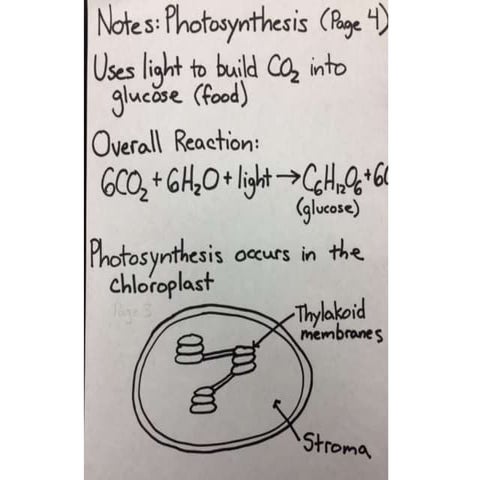 Notes: Photosynthesis (Page 4)
Uses light to build CO₂ into
glucose (food)
Overall Reaction:
6CO₂ + 6H₂O + light → C₆H₁₂O₆ + 6
(glucose)
Photosynthesis occurs in the
chloroplast
Page 3
Thylakoid
membranes
Stroma